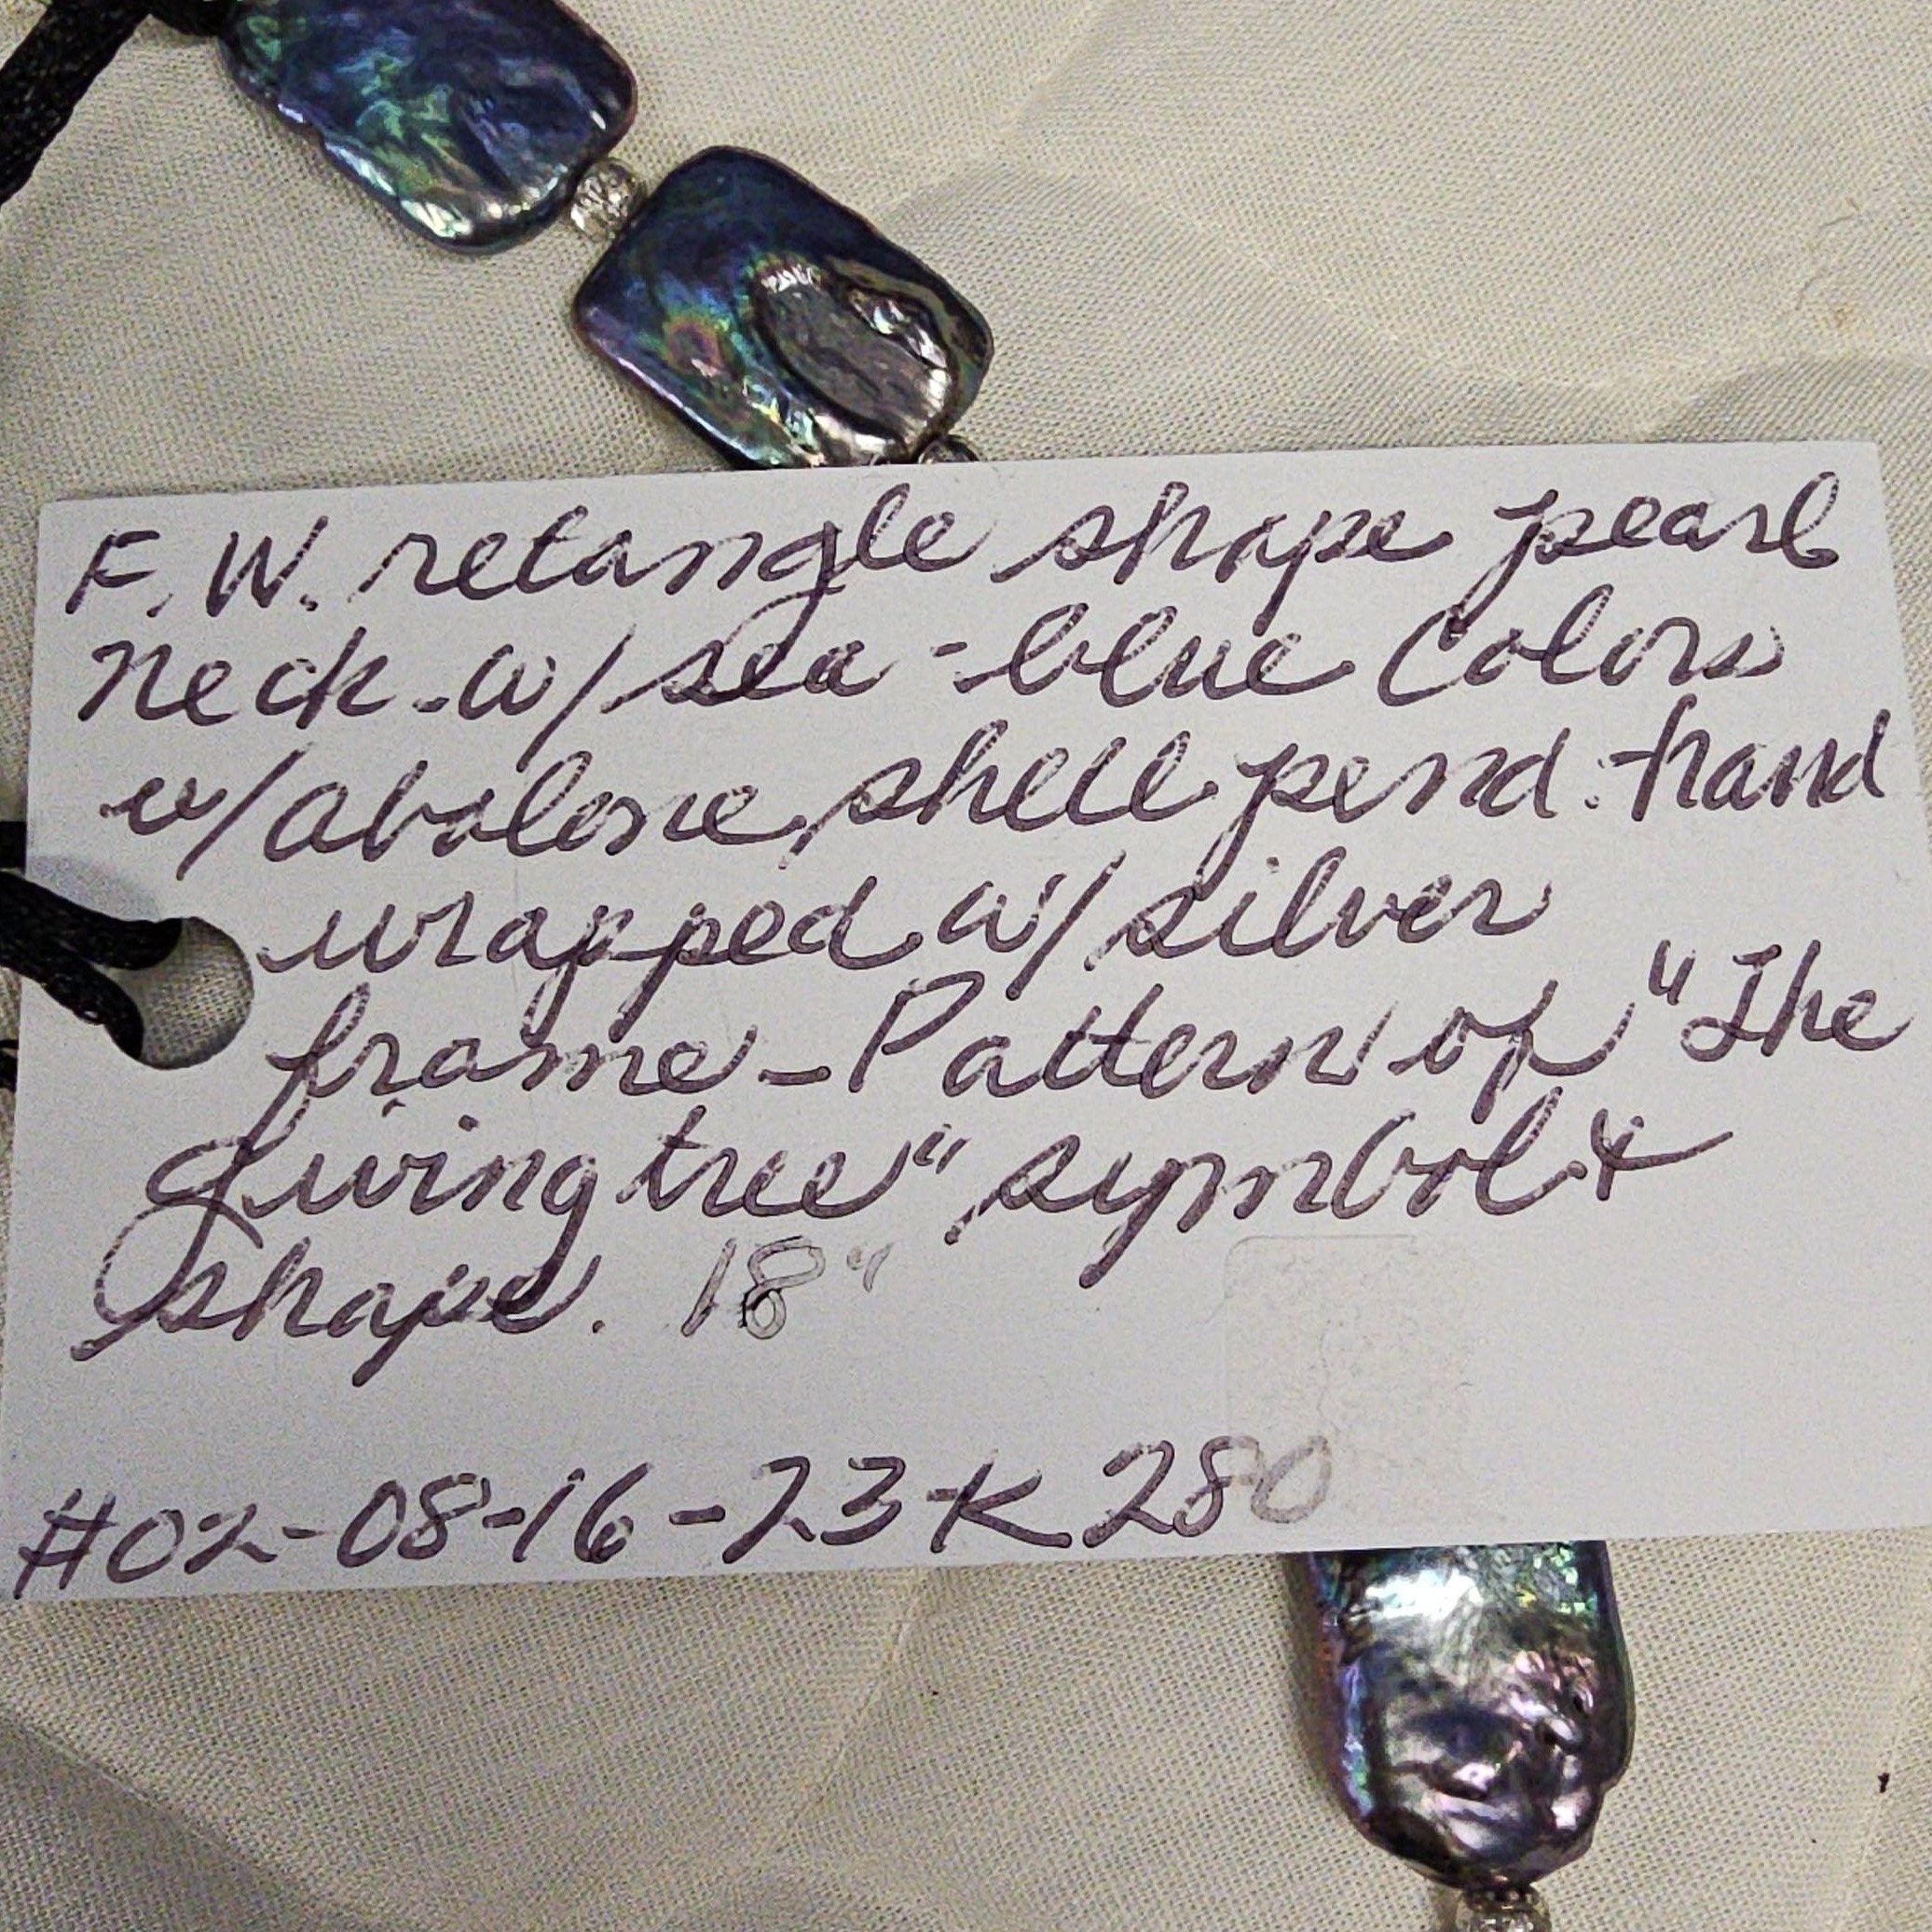 F.W. retangle shape pearl
Neck. w/ sea-blue Colors
w/ abalone shell pend. hand
wrapped w/ silver
frame - Pattern of "The
Living tree" symbol &
shape. 18"
#02-08-16-23-K280